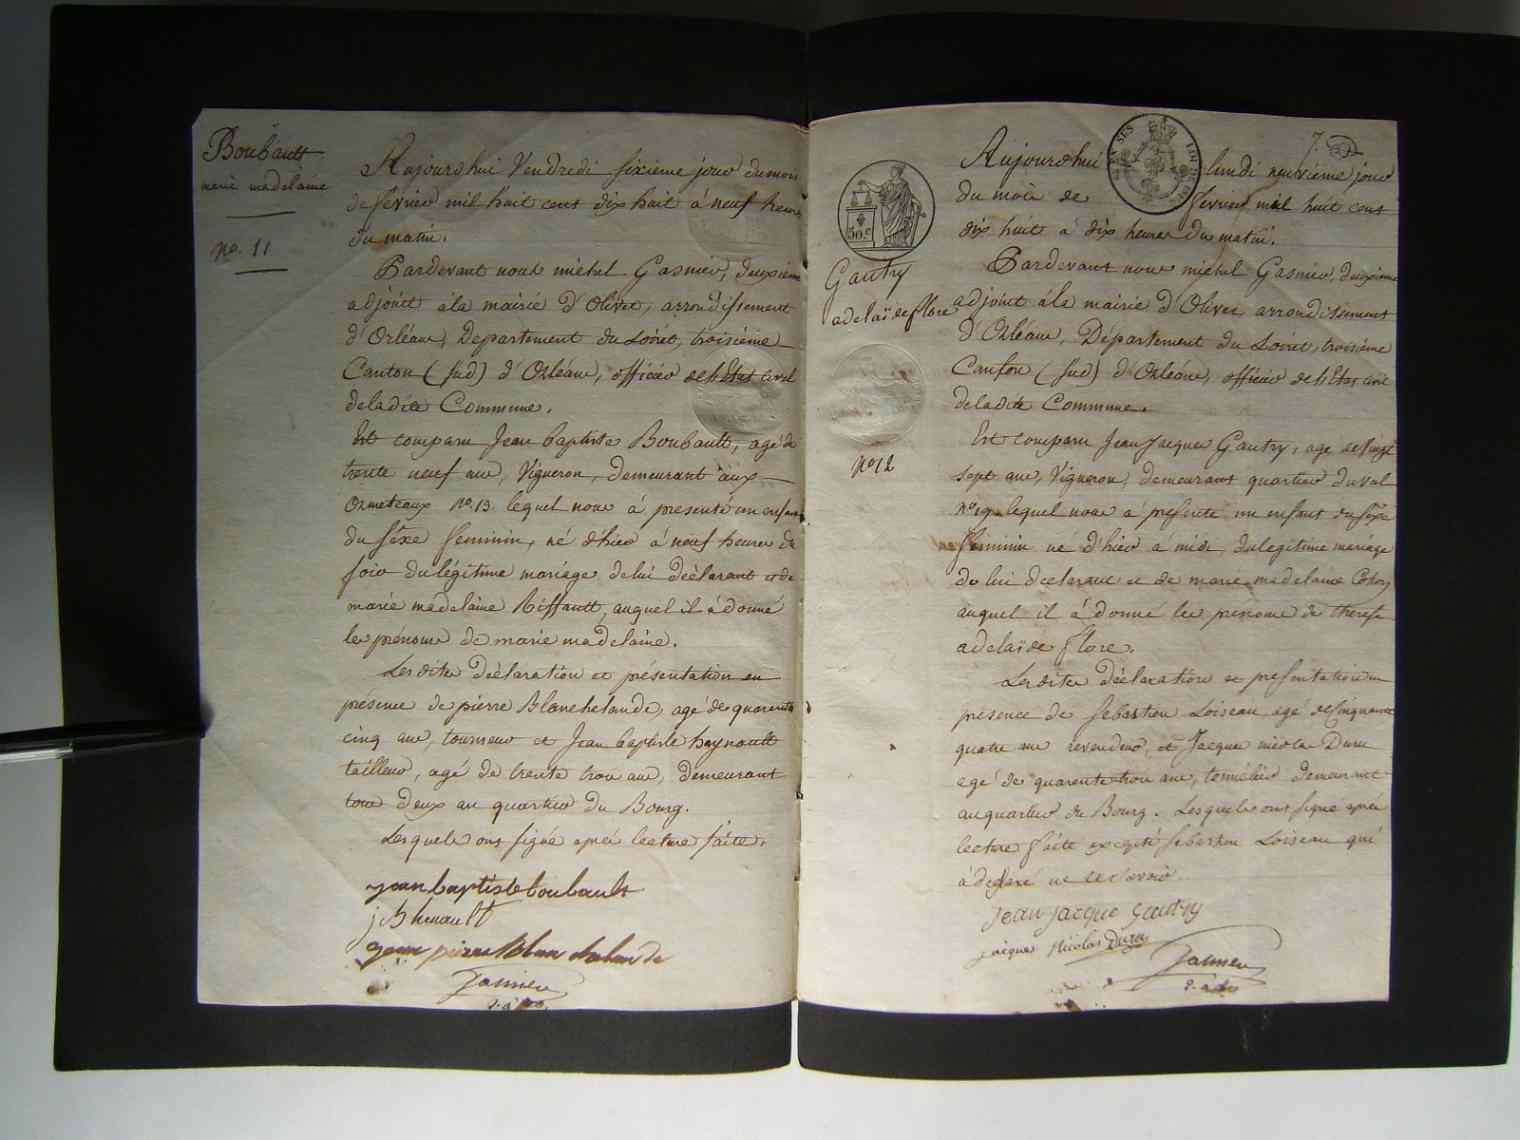 Boubault
marie madelaine
no. 11
Aujourdhui Vendredi sixieme jour du mois
de fevrier mil huit cent dix huit à neuf heures
du matin.
Pardevant nous michel Gasnier, deuxieme
adjoint à la mairie d'Olivet, arrondissement
d'Orléans, Departement du Loiret, troisième
Canton (sud) d'Orléans, officier de l'Etat civil
de ladite Commune.
Est comparu Jean baptiste Boubault, agé de
trente neuf ans, Vigneron, demeurant aux
Ormeteaux no. 13 lequel nous à presenté un enfant
du séxe feminin, né d'hier à neuf heures du
soir du légitime mariage de lui déclarant et de
marie madelaine Riffault, auquel il à donné
les prenoms de marie madelaine.
Lesdites déclaration et présentation en
présence de pierre Blanchelande, agé de quarente
cinq ans, tourneur et Jean baptiste haynault
tailleur, agé de trente trois ans, demeurant
tous deux au quartier du Bourg.
Lesquels ont signé après lecture faite.
jean baptiste boubault
j B hénault
jean pierre blanchelande
Gasnier
7.
50 c
Gautry
adelaïde flore
no 12
Aujourdhui lundi neuvième jour
du mois de fevrier mil huit cent
dix huit à dix heures du matin.
Pardevant nous michel Gasnier, deuxieme
adjoint à la mairie d'Olivet arrondissement
d'Orléans, Département du Loiret, troisième
Canton (sud) d'Orléans, officier de l'Etat civil
de ladite Commune.
Est comparu Jean Jacques Gautry, age de vingt
sept ans, Vigneron, demeurant quartier du val
no 19 lequel nous a presenté un enfant du séxe
féminin né d'hier à midi du legitime mariage
de lui declarant et de marie madelaine
auquel il à donné les prenoms de therese
adelaïde flore.
Lesdites déclaration et presentation en
présence de Sebastien Loiseau agé de cinquante
quatre ans revendeur, et Jacques nicolas Duru
agé de quarente trois ans, tonnelier demeurant
au quartier du Bourg. Lesquels ont signé après
lecture faite excepté sebastien Loiseau qui
à declaré ne le savoir.
Jean jacque gautry
jacques Nicolas Duru
Gasnier